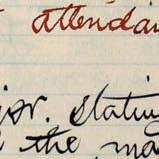 attendan
stating
the ma